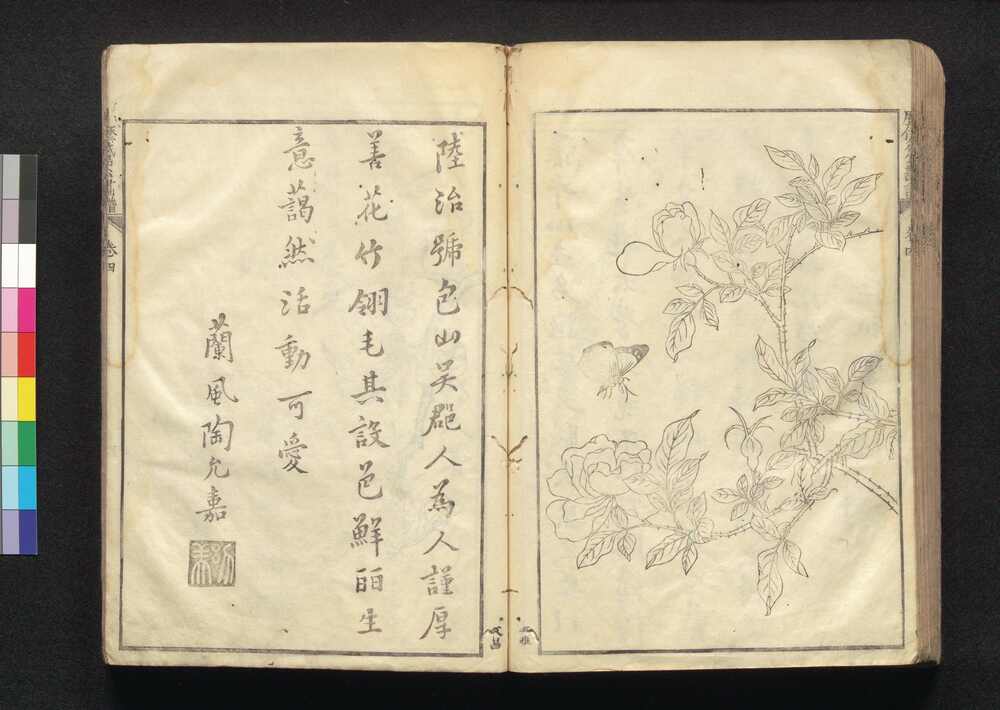 陸治號包山吳郡人為人謹厚
善花竹翎毛其設色鮮皕生
意藹然活動可愛
蘭風陶允嘉
卷四